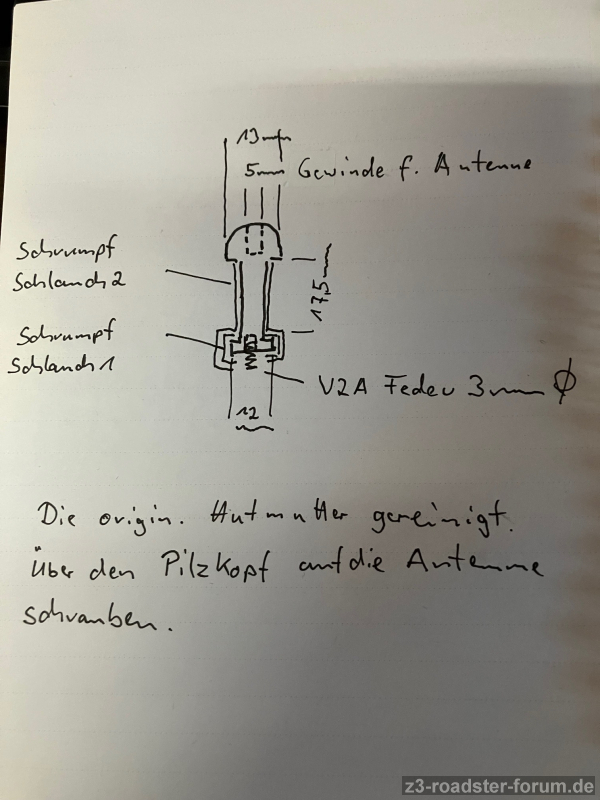 13mm
5mm Gewinde f. Antenne
Schrumpf
Schlauch 2
17,5mm
Schrumpf
Schlauch 1
V2A Feder 3mm Ø
12
Die origin. Hutmutter gereinigt.
Über den Pilzkopf auf die Antenne
schrauben.
z3-roadster-forum.de